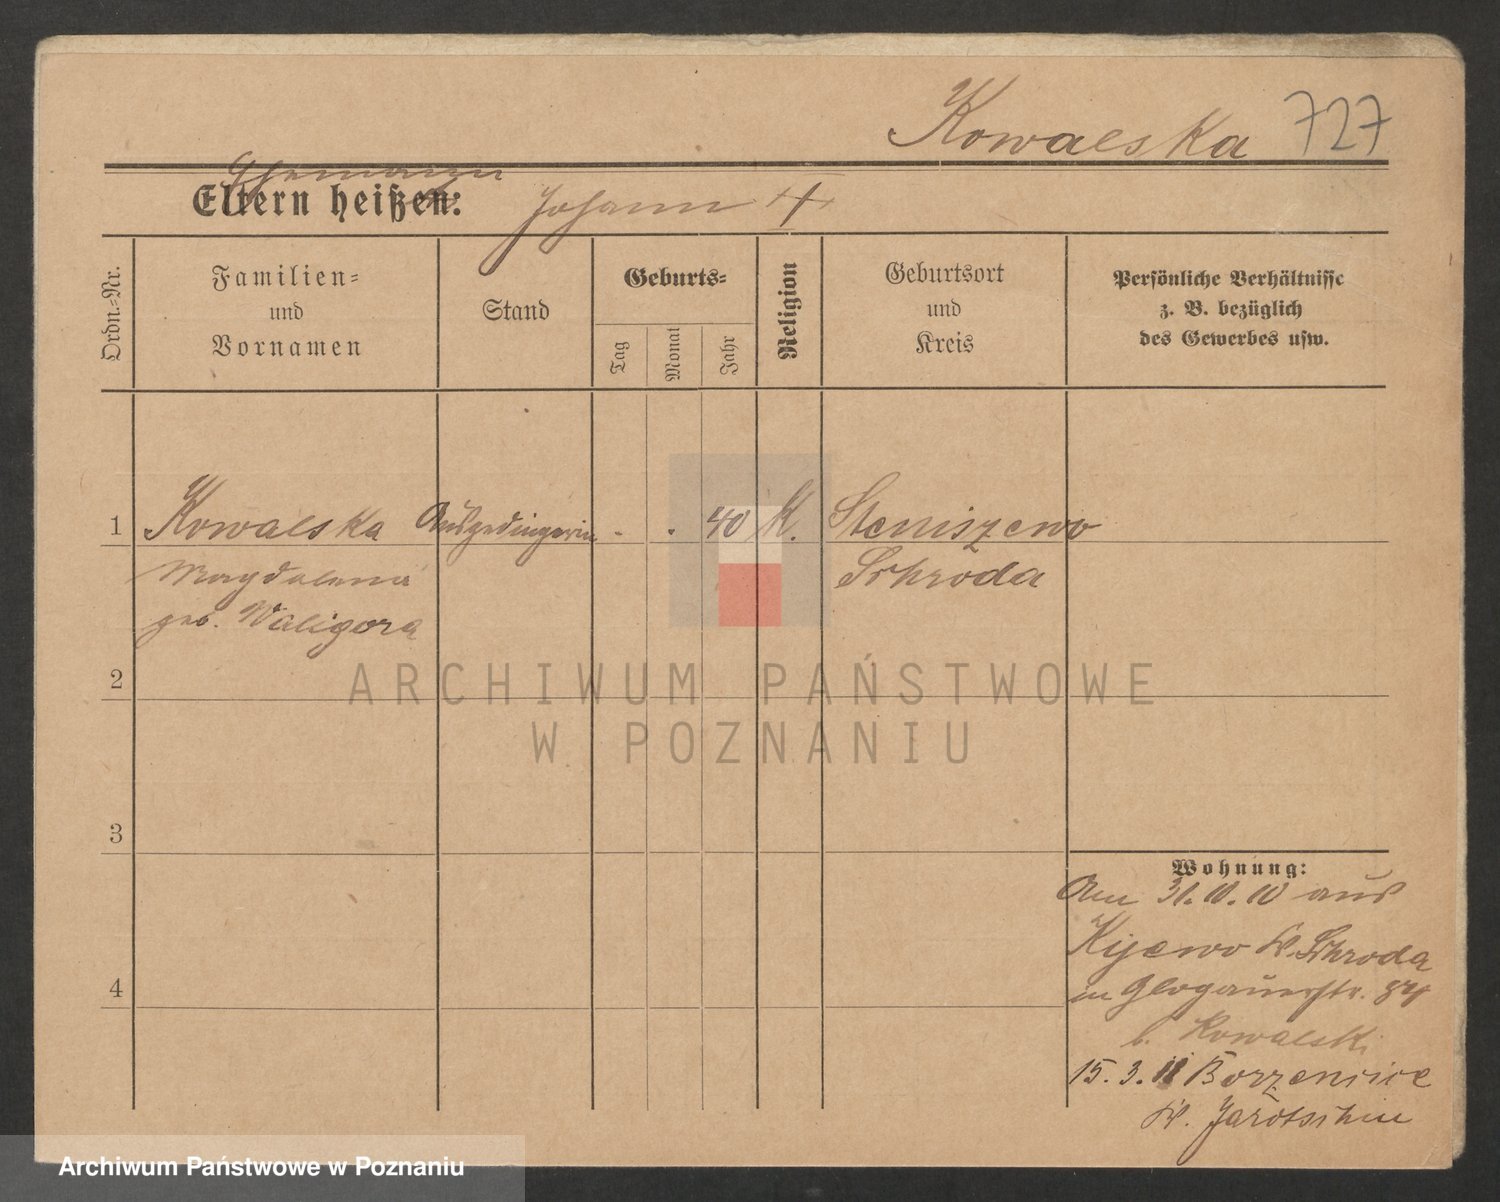 Kowalska 727
Ehemann
Eltern heißen: Johann +
Ordn.-Nr.
Familien-
und
Vornamen
Stand
Geburts-
Tag
Monat
Jahr
Religion
Geburtsort
und
Kreis
Persönliche Verhältnisse
z. B. bezüglich
des Gewerbes usw.
1 Kowalska Ausgedingerin - . 40 K. Steniszewo
Magdalena Schroda
geb. Waligora
2
3
4
Wohnung:
Am 31.10.10 aus
Kijewo K. Schroda
in Glogauerstr. 84
b. Kowalski
15.3.11 Borzencice
K. Jarotschin
ARCHIWUM PAŃSTWOWE
W POZNANIU
Archiwum Państwowe w Poznaniu